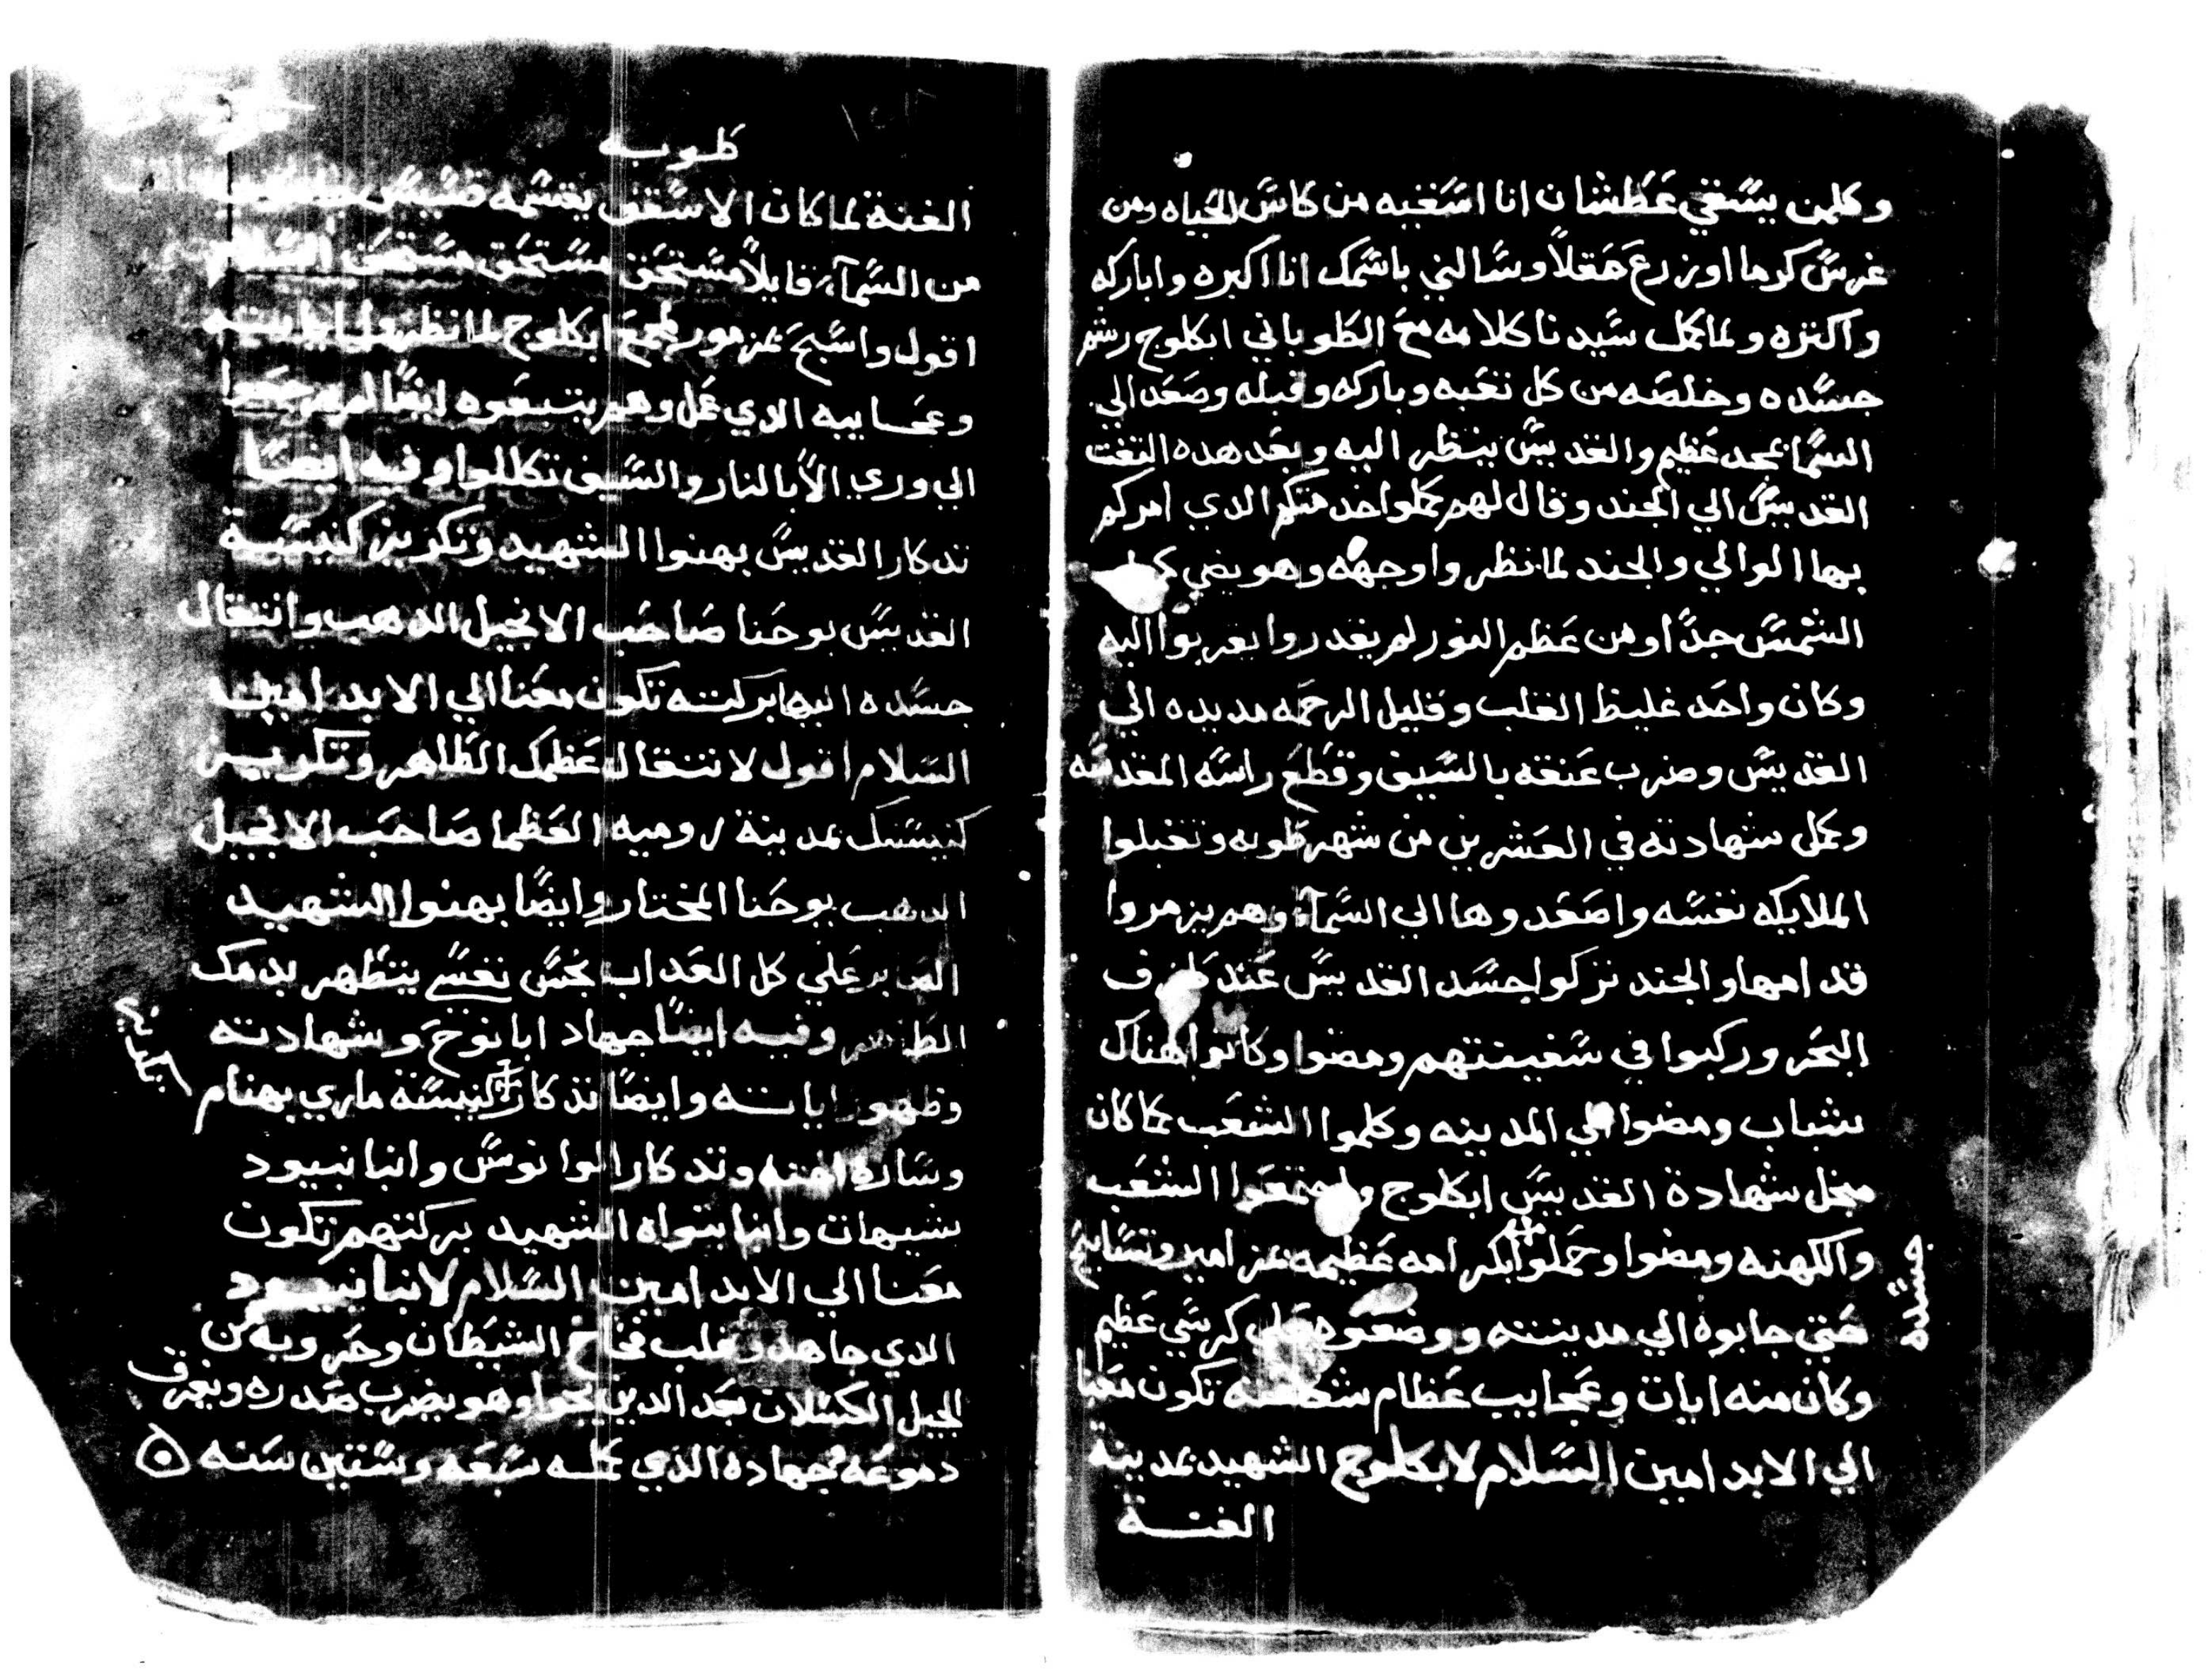 وكلمن يسقي عطشان انا اسقيه من كاس الحياه ومن
غرس كرما او زرع حقلا وسالني باسمك انا اكبره واباركه
واكتره ولما كمل سيدنا كلامه مع الطوباني ابكلوج رشم
جسده وخلصه من كل تعبه وباركه وقبله وصعد الي
السما بمجد عظيم والقديس ينظر اليه وبعد هده التفت
القديس الي الجند وقال لهم كملوا خدمتكم الدي امركم
بها الوالي والجند لما نظروا وجهه وهو يضي
الشمس جدا ومن عظم النور لم يقدروا يقربوا اليه
وكان واحد غليظ القلب وقليل الرحمه مد يده الي
القديس وضرب عنقه بالسيف وقطع راسه المقدسه
وكمل شهادته في العشرين من شهر طوبه وتقبلوا
الملايكه نفسه واصعدوها الي السمآء وهم يزمروا
قدامها والجند تركوا جسد القديس عند
البحر وركبوا في سفينتهم ومضوا وكانوا هناك
شباب ومضوا الي المدينه وكلموا الشعب بما كان
من اجل شهادة القديس ابكلوج واجتمعوا الشعب
والكهنه ومضوا وحملوا بكرامه عظيمه مزامير وتسابيح
جسده
حتي جابوه الي مدينته ووضعوه علي كرسي عظيم
وكان منه ايات وعجايب عظام تكون معنا
الي الابد امين السلام لابكلوج الشهيد بمدينة
الفنة
طوبه
الفنة لما كان الاسقف يقسمه قسيس
من السمآء قايلا مستحق مستحق مستحق السلام
اقول واسبح بمزمور لجمع ابكلوج لما نظروا اياته
وعجايبه الدي عمل وهم يتبعوه ايضا لم يرجعوا
الي وري الا بالنار والسيف تكللوا وفيه ايضا
تدكار القديس بهنوا الشهيد وتكريز كنيسة
القديس يوحنا صاحب الانجيل الدهب وانتقال
جسده اليها بركته تكون معنا الي الابد امين
السلام اقول لانتقال عظمك الطاهر وتكريز
كنيستك بمدينة روميه العظما صاحب الانجيل
الدهب يوحنا المختار وايضا بهنوا الشهيد
الصابر علي كل العداب نجس نفسي يتطهر بدمك
الطاهر وفيه ايضا جهاد ابا نوخ وشهادته
وظهور اياته وايضا تدكار كنيسة ماري بهنام
تكريز
وساره اخته وتدكار الوانوس وانبا نبيود
شيهات وانبا بنواه الشهيد بركتهم تكون
معنا الي الابد امين السلام لانبا نبيود
الدي جاهد وغلب فخاخ الشيطان وحروبه من
الجيل الكسلان بعد الدين نجوا وهو يضرب صدره ويغرق
دموعه جهاده الدي عمله سبعه وستين سنه